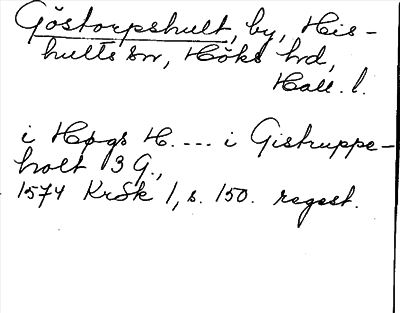 Göstorpshult, by, His-
hults sn, Höks hd,
Hall. l.
i Høgs H. ---- i Gistruppe-
holt 3 G.,
1574 KrSk 1, s. 150. regest.